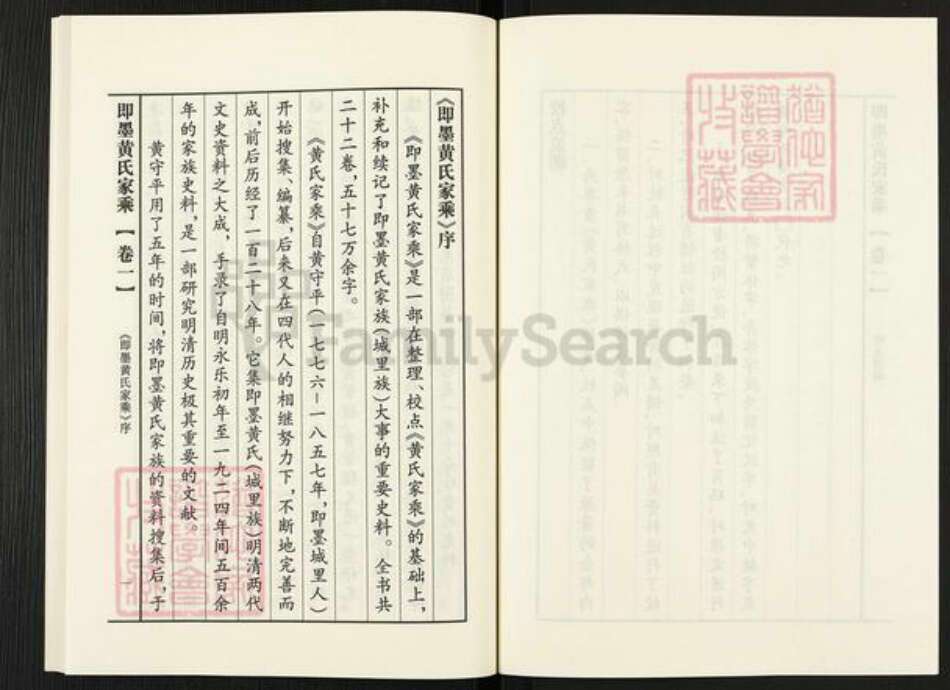 《即墨黄氏家乘》序
《即墨黄氏家乘》是一部在整理、校点《黄氏家乘》的基础上，
补充和续记了即墨黄氏家族（城里族）大事的重要史料。全书共
二十二卷，五十七万余字。
《黄氏家乘》自黄守平（一七七六－一八五七年，即墨城里人）
开始搜集、编纂，后来又在四代人的相继努力下，不断地完善而
成，前后历经了一百二十八年。它集即墨黄氏（城里族）明清两代
文史资料之大成，手录了自明永乐初年至一九二四年间五百余
年的家族史料，是一部研究明清历史极其重要的文献。
黄守平用了五年的时间，将即墨黄氏家族的资料搜集后，于
即墨黄氏家乘【卷一】
《即墨黄氏家乘》序
一
FamilySearch